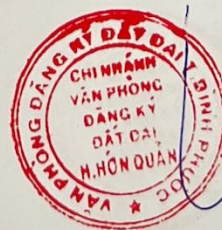 VĂN PHÒNG ĐĂNG KÝ ĐẤT ĐAI T.BÌNH PHƯỚC
CHI NHÁNH
VĂN PHÒNG
ĐĂNG KÝ
ĐẤT ĐAI
H.HỚN QUẢN